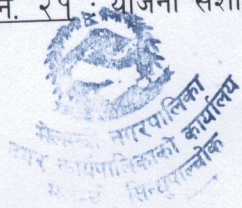 नं. २१ : योजना संशो
मेलम्ची नगरपालिका
नगर कार्यपालिकाको कार्यालय
सिन्धुपाल्चोक